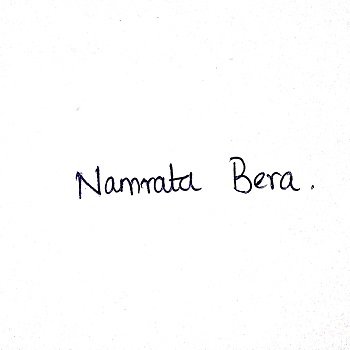 Namrata Bera.